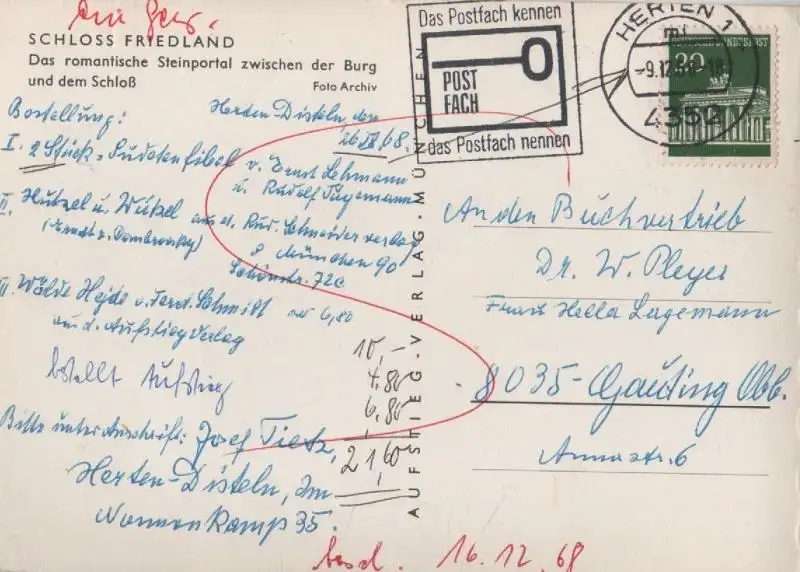 SCHLOSS FRIEDLAND
Das romantische Steinportal zwischen der Burg
und dem Schloß
Foto Archiv
Das Postfach kennen
POST
FACH
das Postfach nennen
HERTEN 1
4352
DEUTSCHE BUNDESPOST
Bestellung:
Herten-Disteln den
I. 2 Stück. Sudetenfibel v. Ernst Lehmann
u. Rudolf
II. Hutzel u. Wutzel aus d. Rud. Schneider verlag
8 München 90
Schönstr. 72c
III. Wälde Heide v. Ferd. Schmidt 6,80
aus d. Aufstieg Verlag
10,-
4.80
6,80
21,60
bestellt Aufstieg
Bitte unter Anschrift: Josef Tietz,
Herten-Disteln, Im
Nonnenkamp 35.
AUFSTIEG-VERLAG · MÜNCHEN
An den Buchvertrieb
Dr. W. Pleyer
Frau Hella Lagemann
8035-Gauting Obb.
Annastr. 6
16.12.68